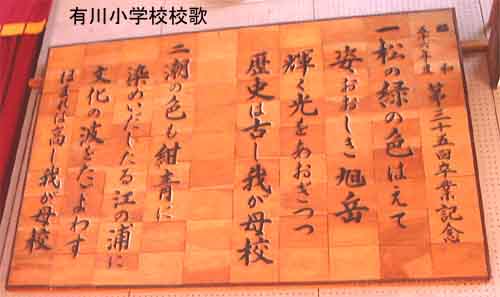 有川小学校校歌
昭和
年度
第三十五回卒業記念
一松の緑の色はえて
姿おおしき旭岳
輝く光をあおぎつつ
歴史は古し我が母校
二潮の色も紺青に
染めいだしたる江の浦に
文化の波をただよわす
ほまれは高し我が母校